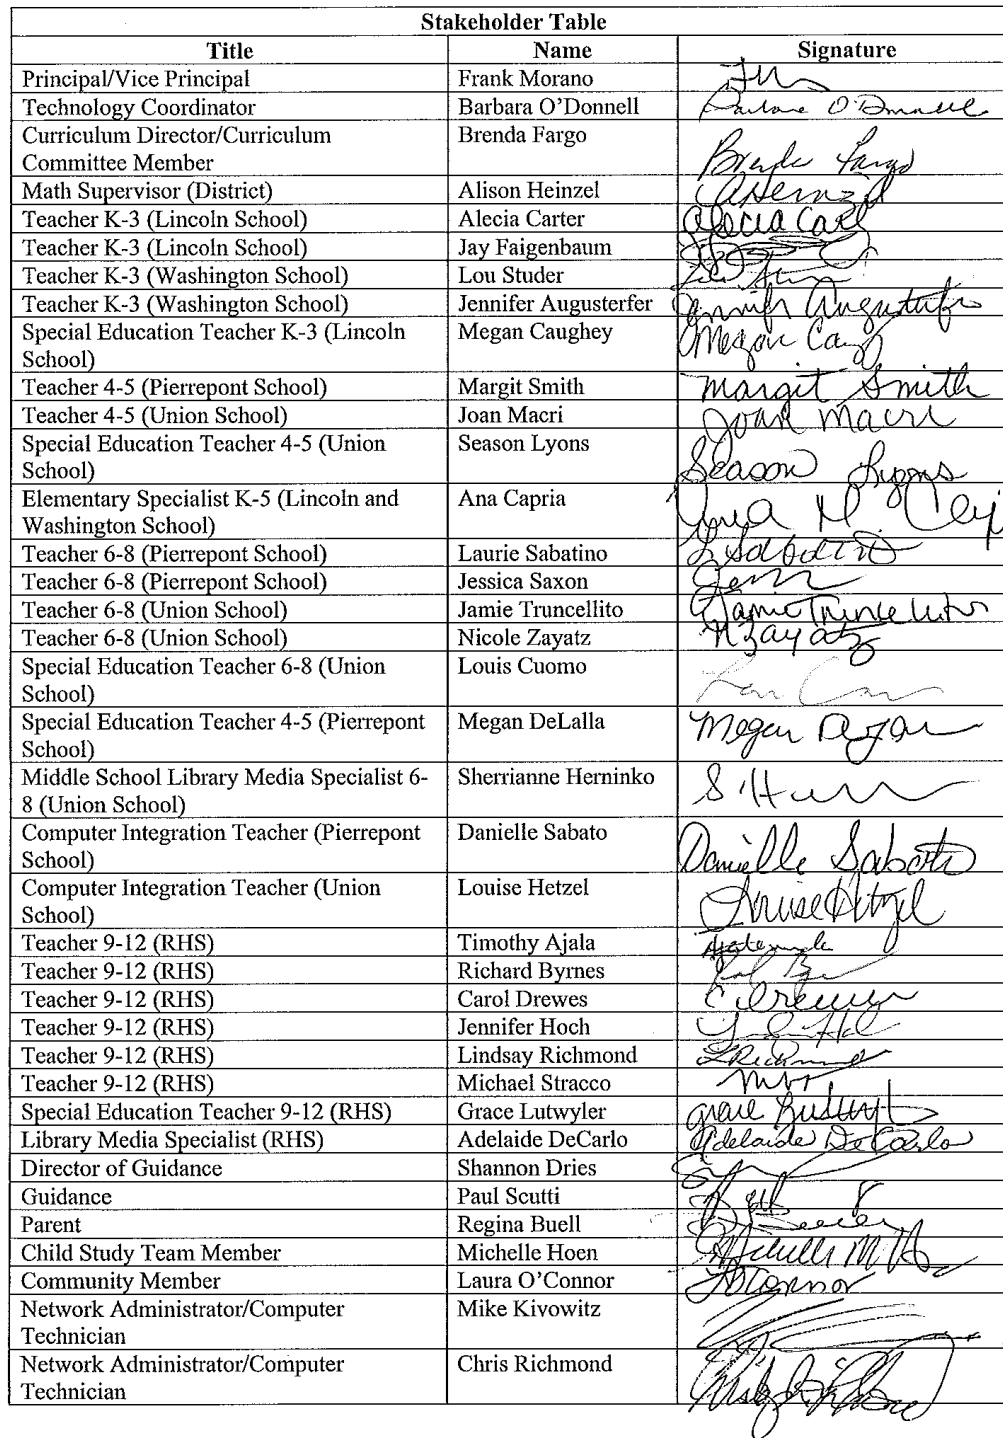 Stakeholder Table
Title Name Signature
Principal/Vice Principal Frank Morano
Technology Coordinator Barbara O'Donnell Barbara O'Donnell
Curriculum Director/Curriculum Brenda Fargo
Committee Member Brenda Fargo
Math Supervisor (District) Alison Heinzel AHeinzel
Teacher K-3 (Lincoln School) Alecia Carter Alecia Cart
Teacher K-3 (Lincoln School) Jay Faigenbaum
Teacher K-3 (Washington School) Lou Studer
Teacher K-3 (Washington School) Jennifer Augusterfer Jennifer Augusterfer
Special Education Teacher K-3 (Lincoln Megan Caughey Megan
School)
Teacher 4-5 (Pierrepont School) Margit Smith Margit Smith
Teacher 4-5 (Union School) Joan Macri Joan Macri
Special Education Teacher 4-5 (Union Season Lyons
School) Season Lyons
Elementary Specialist K-5 (Lincoln and Ana Capria
Washington School) Ana M
Teacher 6-8 (Pierrepont School) Laurie Sabatino L Sabatino
Teacher 6-8 (Pierrepont School) Jessica Saxon
Teacher 6-8 (Union School) Jamie Truncellito Jamie Truncellito
Teacher 6-8 (Union School) Nicole Zayatz N Zayatz
Special Education Teacher 6-8 (Union Louis Cuomo
School)
Special Education Teacher 4-5 (Pierrepont Megan DeLalla Megan
School)
Middle School Library Media Specialist 6- Sherrianne Herninko
8 (Union School)
Computer Integration Teacher (Pierrepont Danielle Sabato
School) Danielle Sabato
Computer Integration Teacher (Union Louise Hetzel Louise Hetzel
School)
Teacher 9-12 (RHS) Timothy Ajala
Teacher 9-12 (RHS) Richard Byrnes
Teacher 9-12 (RHS) Carol Drewes C Drewes
Teacher 9-12 (RHS) Jennifer Hoch
Teacher 9-12 (RHS) Lindsay Richmond LRichmond
Teacher 9-12 (RHS) Michael Stracco
Special Education Teacher 9-12 (RHS) Grace Lutwyler Grace
Library Media Specialist (RHS) Adelaide DeCarlo Adelaide DeCarlo
Director of Guidance Shannon Dries
Guidance Paul Scutti
Parent Regina Buell
Child Study Team Member Michelle Hoen Michelle M
Community Member Laura O'Connor LO'Connor
Network Administrator/Computer Mike Kivowitz
Technician
Network Administrator/Computer Chris Richmond
Technician